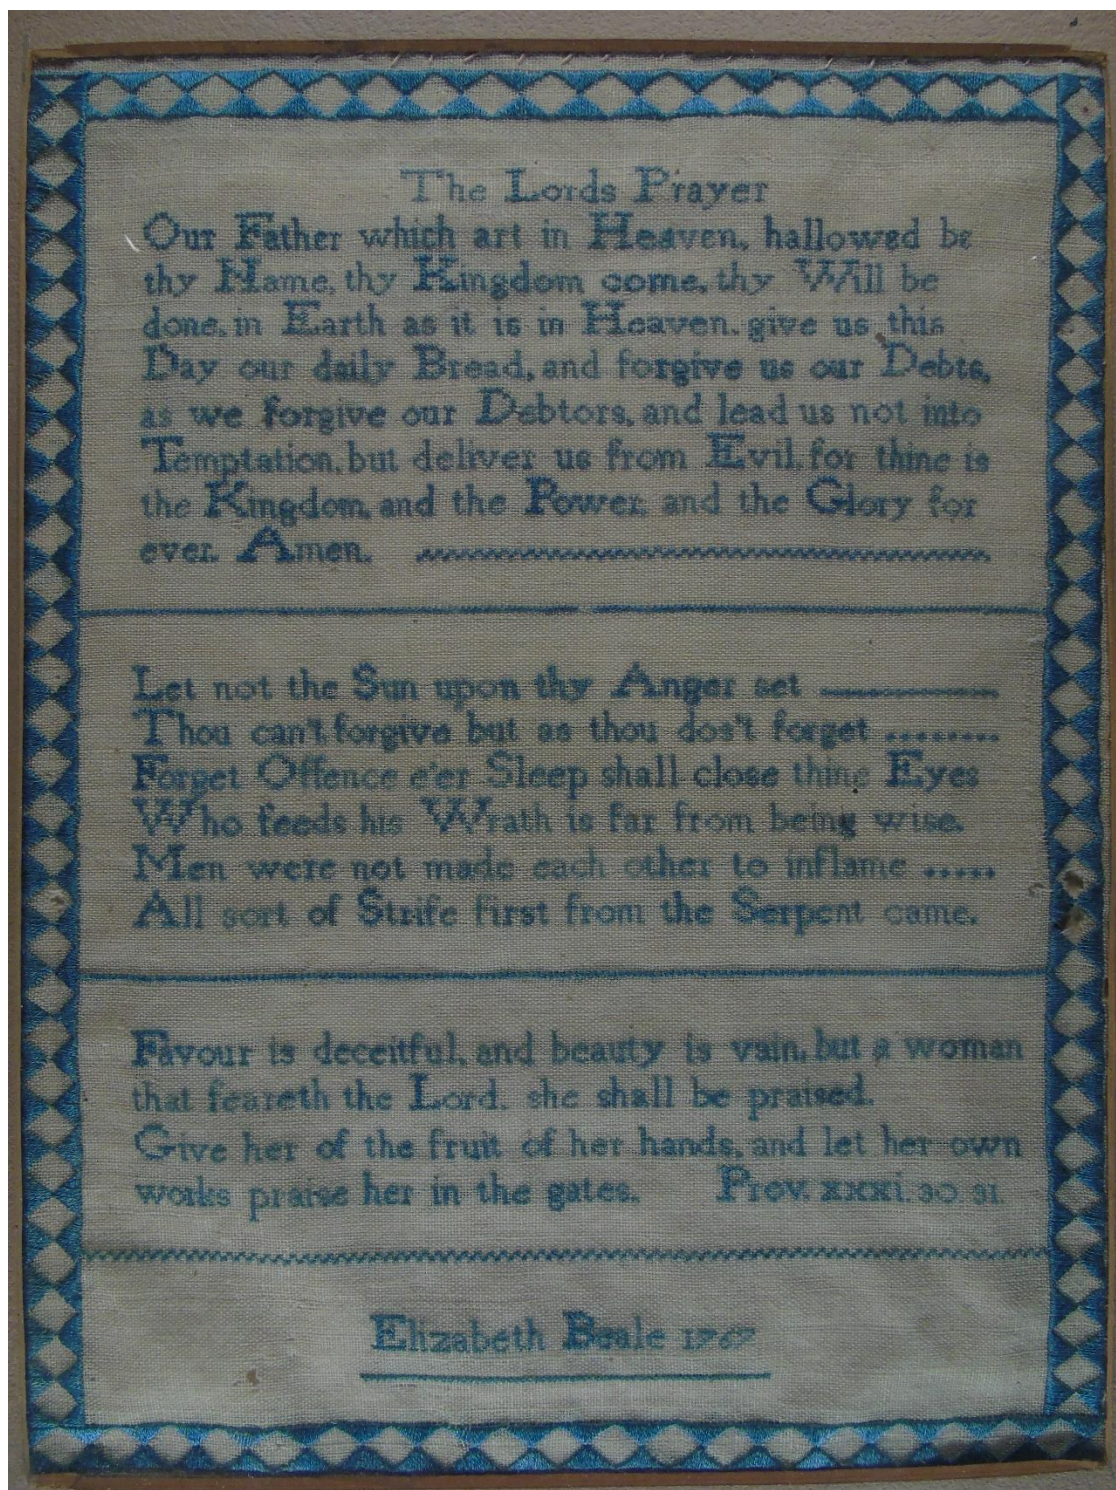 The Lords Prayer
Our Father which art in Heaven, hallowed be
thy Name, thy Kingdom come, thy Will be
done, in Earth as it is in Heaven. give us this
Day our daily Bread, and forgive us our Debts,
as we forgive our Debtors, and lead us not into
Temptation, but deliver us from Evil, for thine is
the Kingdom, and the Power, and the Glory for
ever. Amen.
Let not the Sun upon thy Anger set
Thou can't forgive but as thou dos't forget ........
Forget Offence e'er Sleep shall close thine Eyes
Who feeds his Wrath is far from being wise.
Men were not made each other to inflame .....
All sort of Strife first from the Serpent came.
Favour is deceitful, and beauty is vain, but a woman
that feareth the Lord, she shall be praised.
Give her of the fruit of her hands, and let her own
works praise her in the gates. Prov. xxxi. 30. 31.
Elizabeth Beale 1767